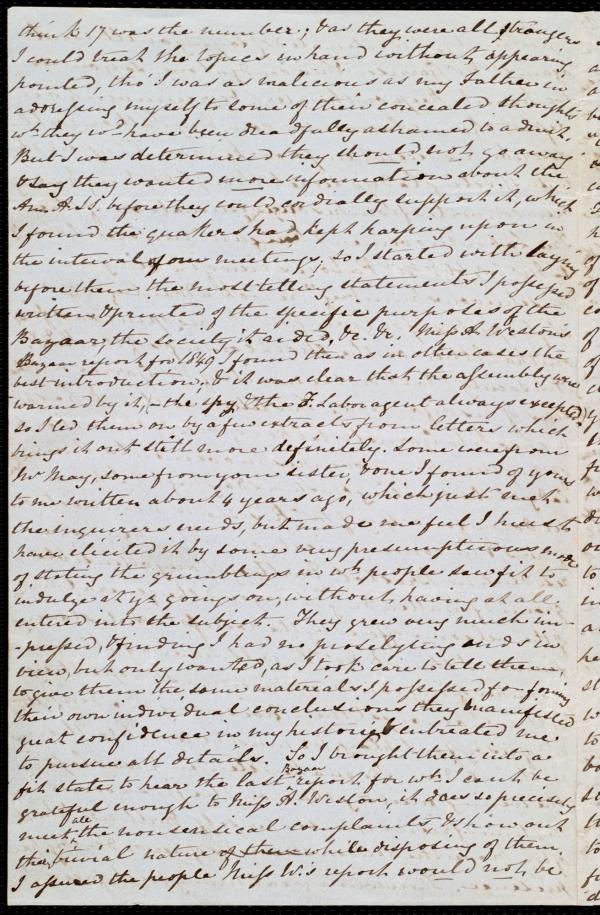 think 17 was the number; & as they were all strangers
I could treat the topics in hand without appearing
pointed, tho' I was as malicious as my Father in
addressing myself to some of their concealed thoughts
wh they wd have been dreadfully ashamed to admit.
But I was determined they should not go away
& say they wanted more information about the
Am. A.S.S. before they could cordially support it, which
I found the quakers had kept harping upon in
the interval of our meetings, so I started with laying
before them the most telling statements I possessed
written & printed of the specific purposes of the
Bazaar, the society it aided, &c. &c. Miss A. Weston's
Bazaar report for 1849 I found then as in other cases the
best introduction, & it was clear that the assembly were
warmed by it, - the spy & the F. Labor agent always excepted,
so I led them on by a few extracts from letters which
brings it out still more definitely. Some were from
Mr May, some from your sister, & one I found of yours
to me written about 4 years ago, which just met
the inquirers needs, but made me feel I must
have elicited it by some very presumptuous mode
of stating the grumblings in wh people saw fit to
indulge at yr goings on, without having at all
entered into the subject. They grew very much im-
-pressed, & finding I had no proselyting ends in
view, but only wanted, as I took care to tell them,
to give them the same materials I possessed for forming
their own individual conclusions they manifested
great confidence in my histories & entreated me
to pursue all details. So I brought them into a
fit state to hear the last Bazaar report for wh I can't be
grateful enough to Miss A. Weston, it does so precisely
meet all the nonsensical complaints, & show out
their trivial nature of them while disposing of them.
I assured the people Miss W's report would not be